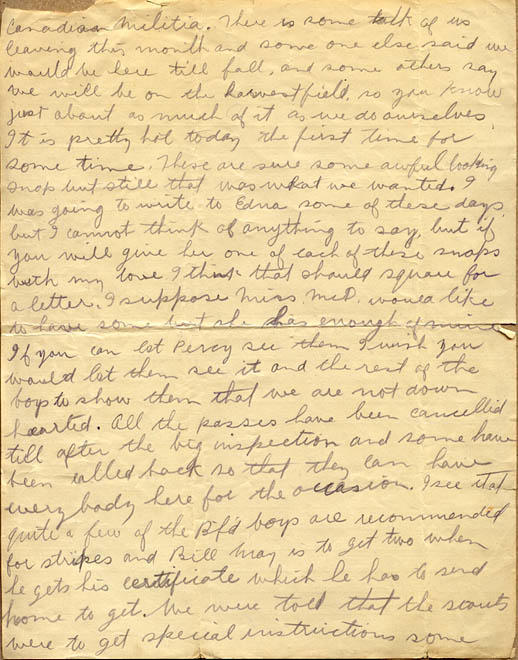 Canadian Militia. There is some talk of us
leaving this month and some one else said we
would be here till fall, and some others say
we will be on the harvestfield, so you know
just about as much of it as we do ourselves.
It is pretty hot today the first time for
some time. These are sure some awful looking
snaps but still that was what we wanted. I
was going to write to Edna some of these days
but I cannot think of anything to say, but if
you will give her one of each of these snaps
with my love I think that should square for
a letter. I suppose Miss McD. would like
to have some but she has enough of mine
If you can let Percy see them I wish you
would let them see it and the rest of the
boys to show them that we are not down
hearted. All the passes have been cancelled
till after the big inspection and some have
been called back so that they can have
every body here for the occasion. I see that
quite a few of the Bfd boys are recommended
for stripes and Bill May is to get two when
he gets his certificate which he has to send
home to get. We were told that the scouts
were to get special instructions some